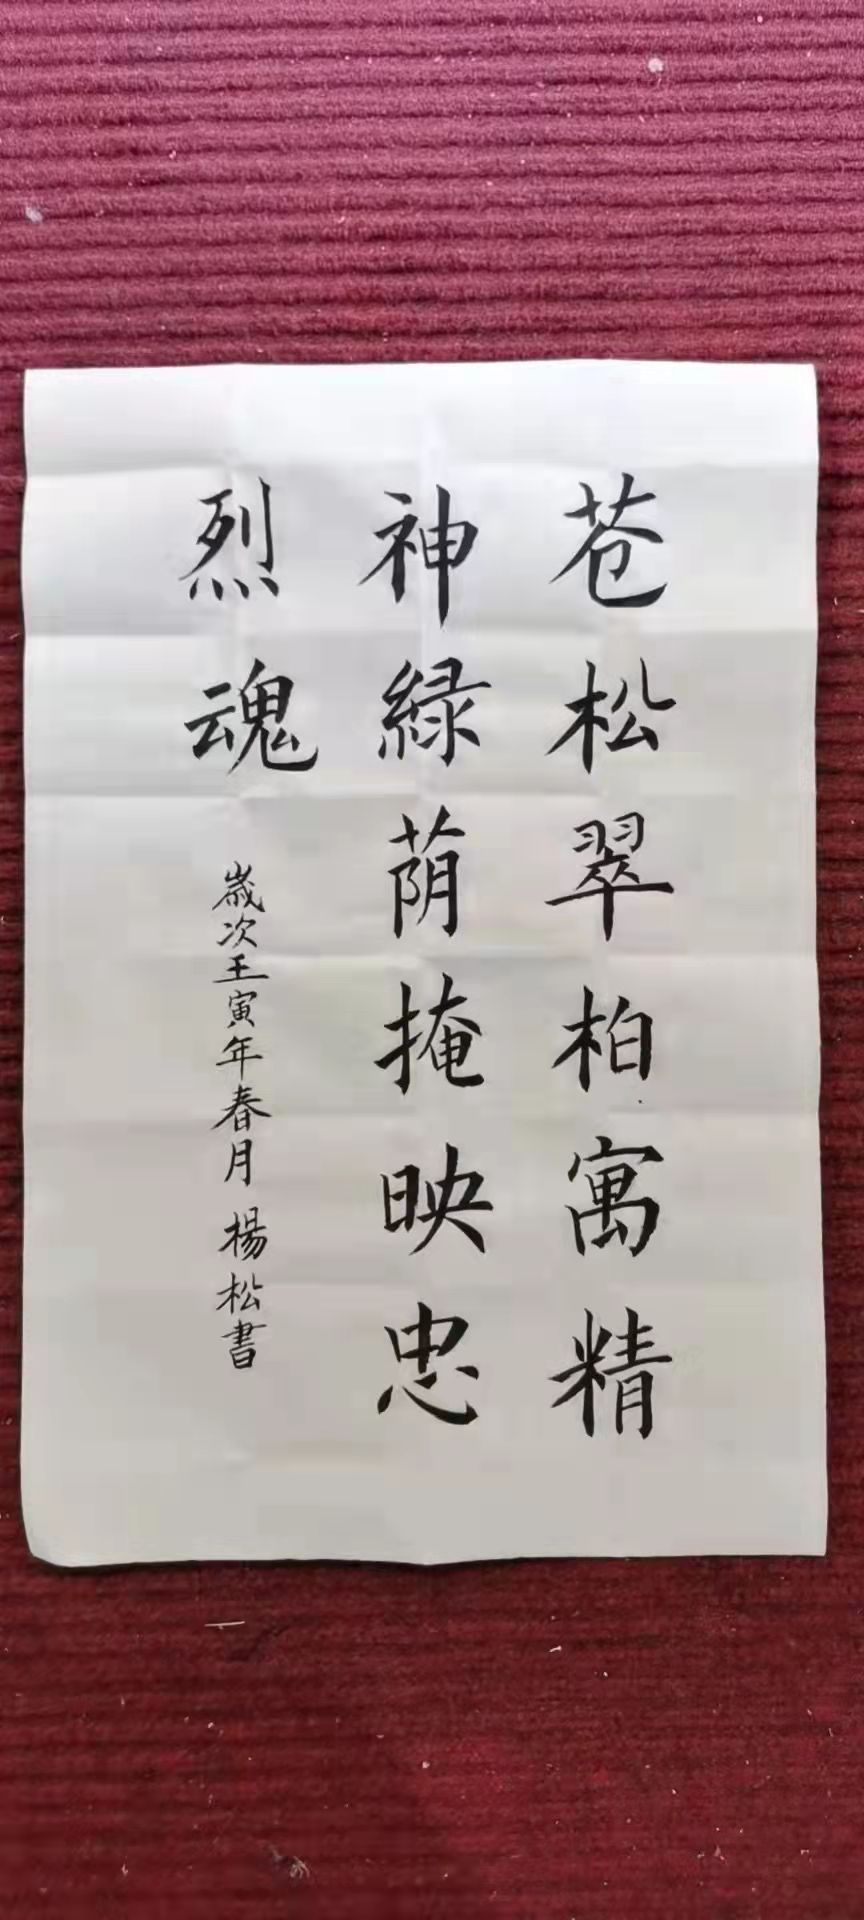 苍松翠柏寓精
神緑荫掩映忠
烈魂
歲次壬寅年春月 楊松書